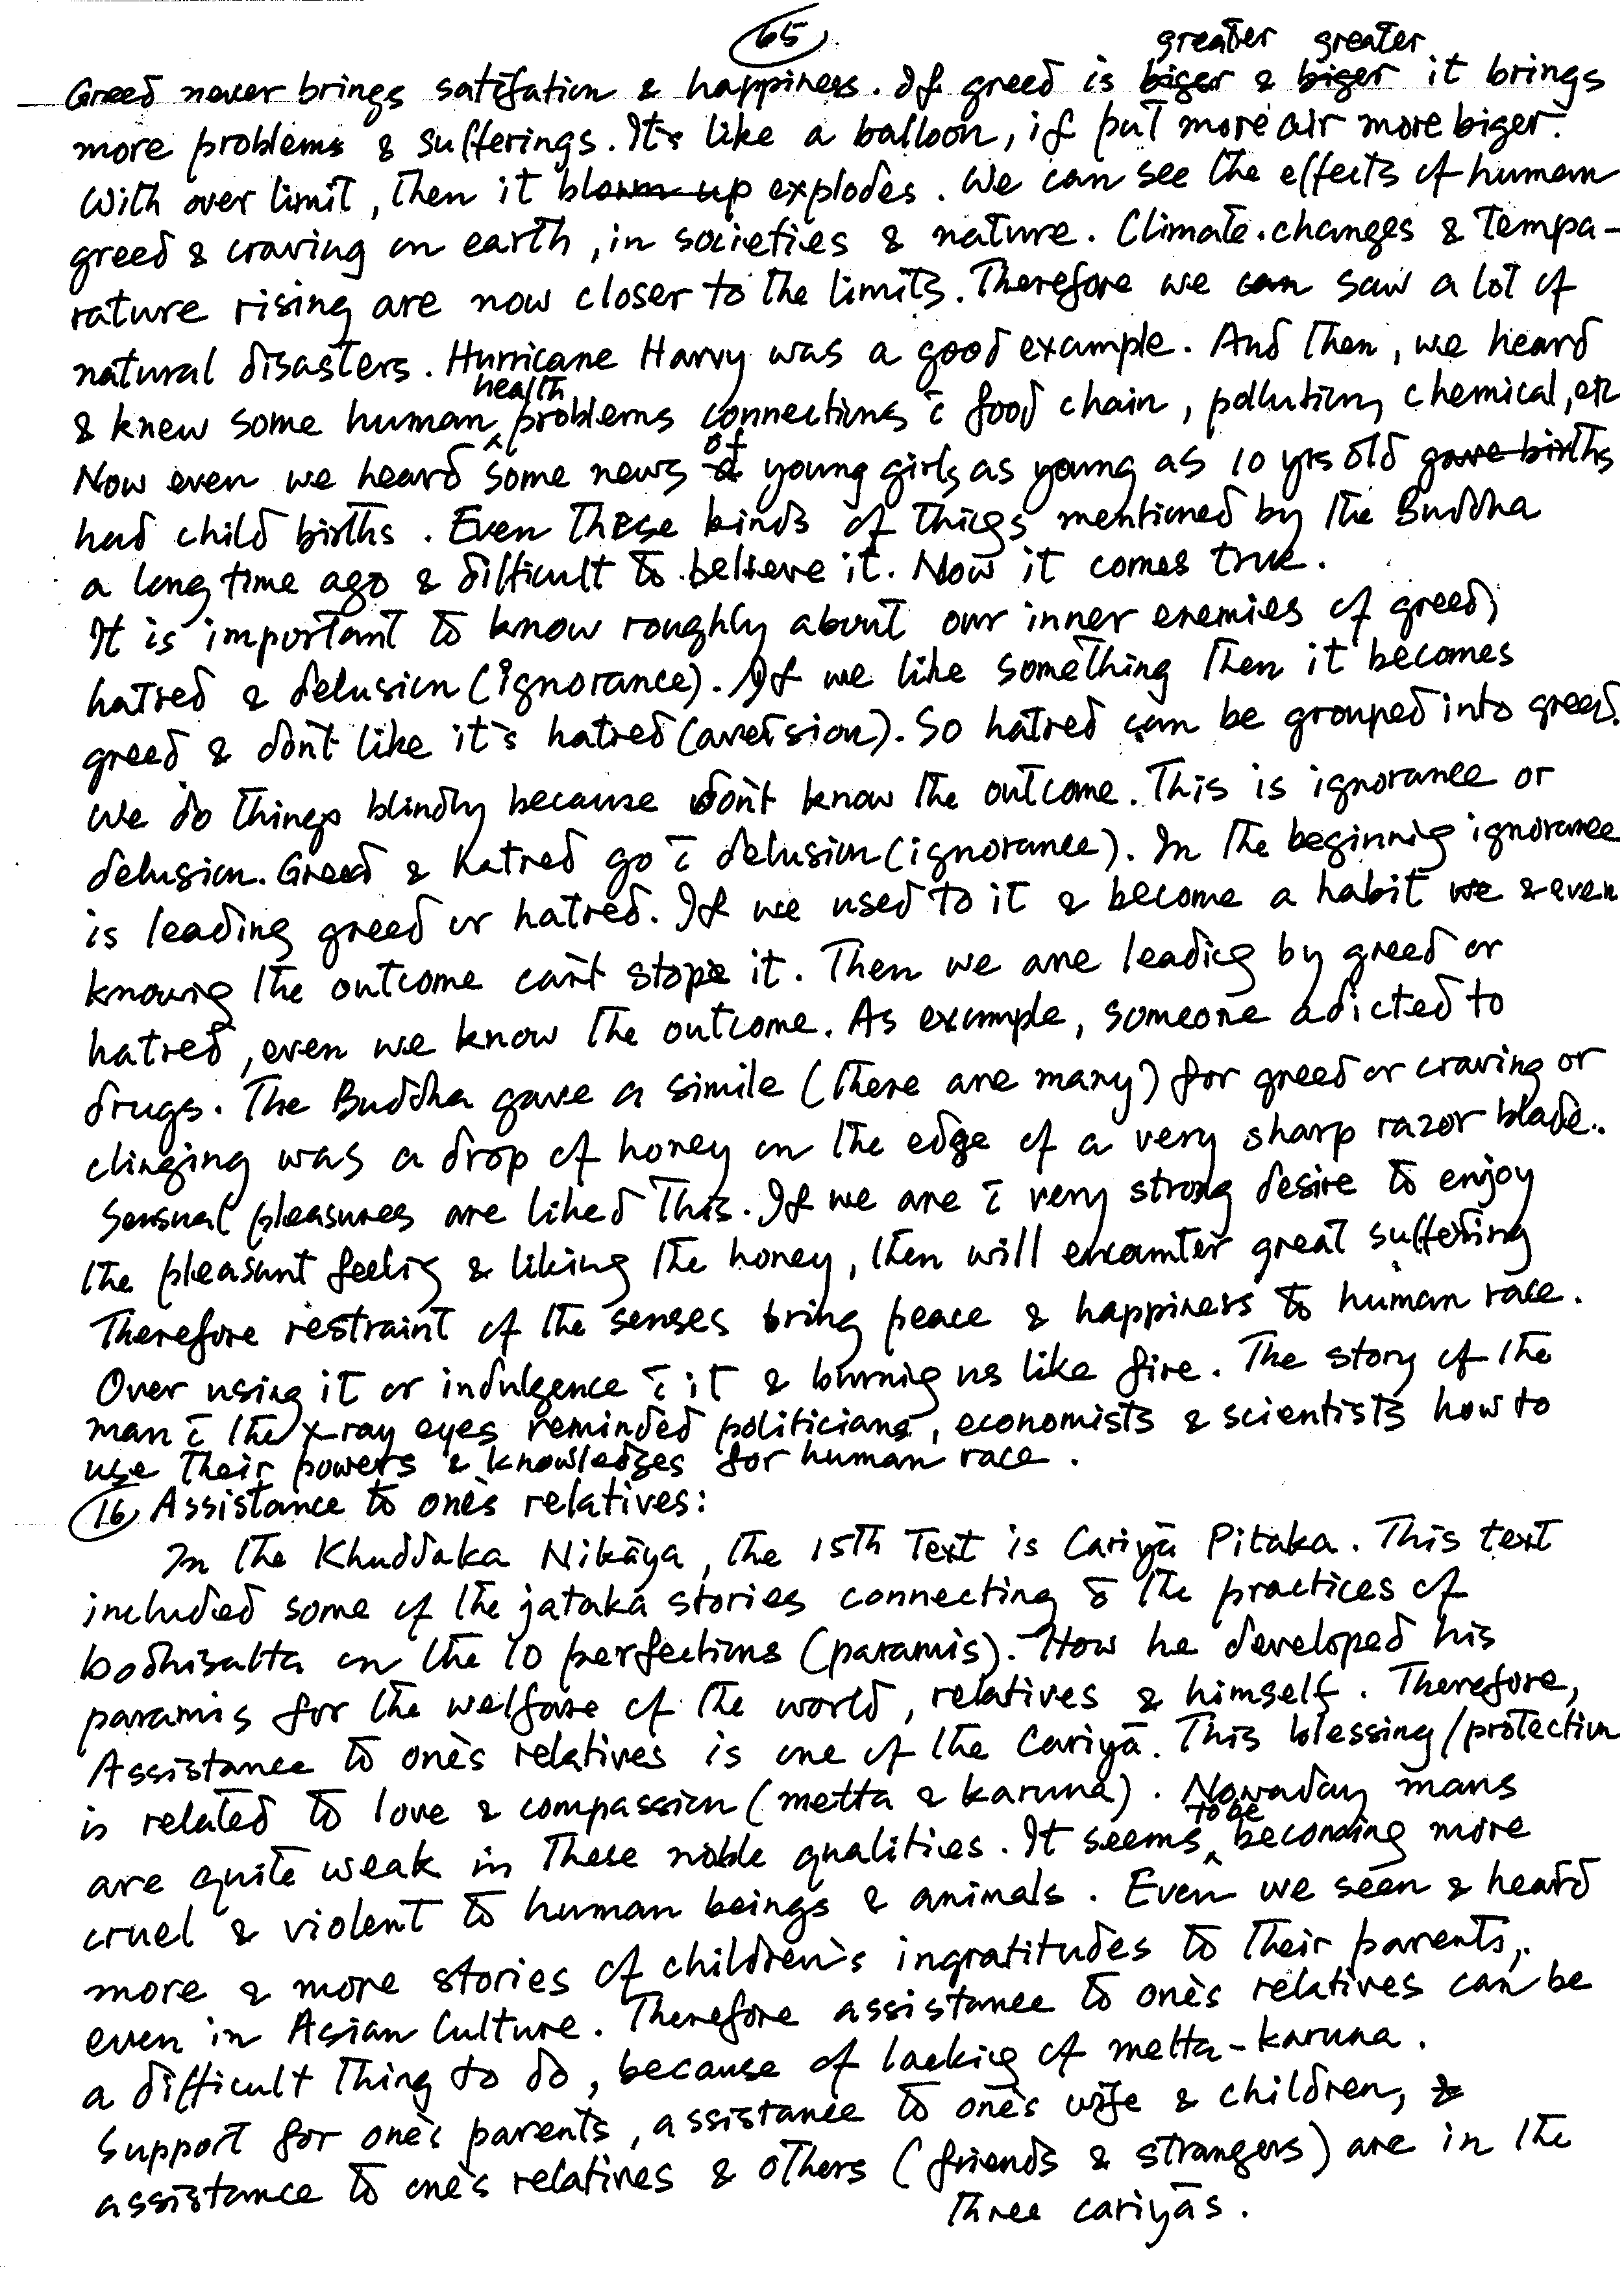 65
greater greater
Greed never brings satifation & happiness. If greed is biger & biger it brings
more problems & sufferings. It's like a balloon, if put more air more biger.
With over limit, then it blown up explodes. We can see the effects of human
greed & craving on earth, in societies & nature. Climate changes & tempa-
rature rising are now closer to the limits. Therefore we can saw a lot of
natural disasters. Hurricane Harvy was a good example. And then, we heard
health
& knew some human problems connections c̄ food chain, pollution, chemical, etc
of
Now even we heard some news of young girls as young as 10 yrs old gave births
had child births. Even these kinds of things mentioned by the Buddha
a long time ago & difficult to believe it. Now it comes true.
It is important to know roughly about our inner enemies of greed,
hatred & delusion (ignorance). If we like something then it becomes
greed & don't like it's hatred (aversion). So hatred can be grouped into greed.
We do things blindly because don't know the outcome. This is ignorance or
delusion. Greed & hatred go c̄ delusion (ignorance). In the beginnig ignorance
is leading greed or hatred. If we used to it & become a habit we & even
knowig the outcome can't stop it. Then we are leadig by greed or
hatred, even we know the outcome. As example, someone adicted to
drugs. The Buddha gave a simile (there are many) for greed or craving or
clinging was a drop of honey on the edge of a very sharp razor blade.
Sensual pleasures are liked this. If we are c̄ very strong desire to enjoy
the pleasant feelig & liking the honey, then will encounter great suffering
Therefore restraint of the senses bring peace & happiness to human race.
Over using it or indulgence c̄ it & burnig us like fire. The story of the
man c̄ the x-ray eyes reminded politicians, economists & scientists how to
use their powers & knowledges for human race.
16 Assistance to one's relatives:
In the Khuddaka Nikāya, the 15th Text is Cariyā Pitaka. This text
included some of the jataka stories connecting to the practices of
bodhisatta on the 10 perfections (paramis). How he developed his
paramis for the welfare of the world, relatives & himself. Therefore,
Assistance to one's relatives is one of the Cariyā. This blessing/protection
is related to love & compassion (metta & karuna). Nowaday mans
to be
are quite weak in these noble qualities. It seems becoming more
cruel & violent to human beings & animals. Even we seen & heard
more & more stories of children's ingratitudes to their parents,
even in Asian Culture. Therefore assistance to one's relatives can be
a difficult thing to do, because of lackig of metta-karuna.
Support for one's parents, assistance to one's wife & children, &
assistance to one's relatives & others (friends & strangers) are in the
three cariyās.